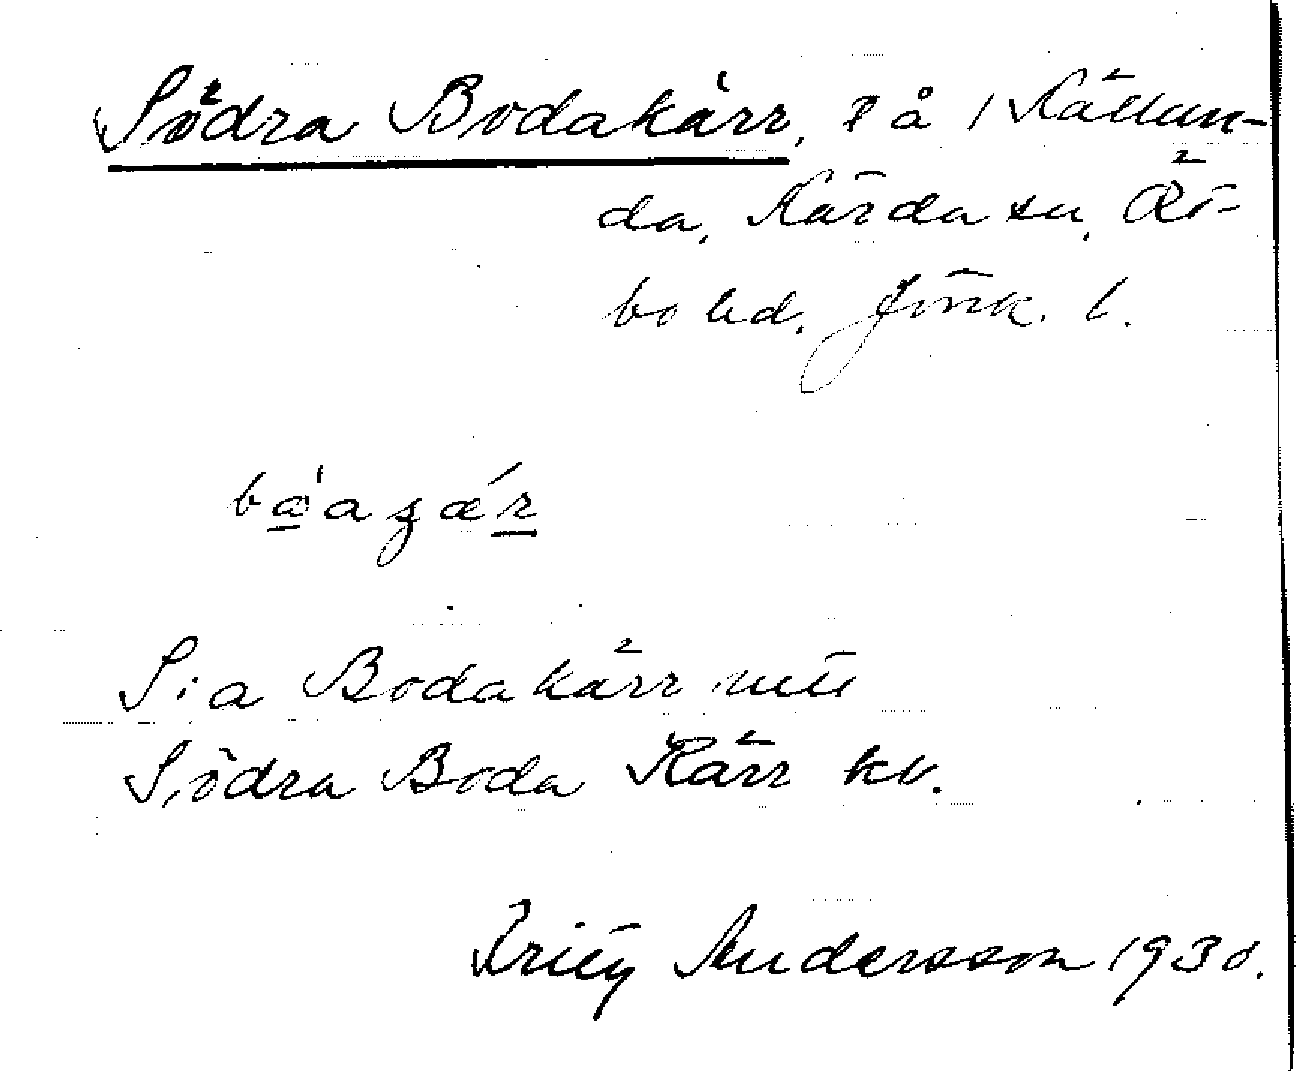 Södra Bodakärr, på 1 Källun-
da, Kärda sn, Öst-
bo hd, Jönk. l.
båagæ´r
S:a Bodakärr
Södra Boda Kärr kv.
Andersson 1930.